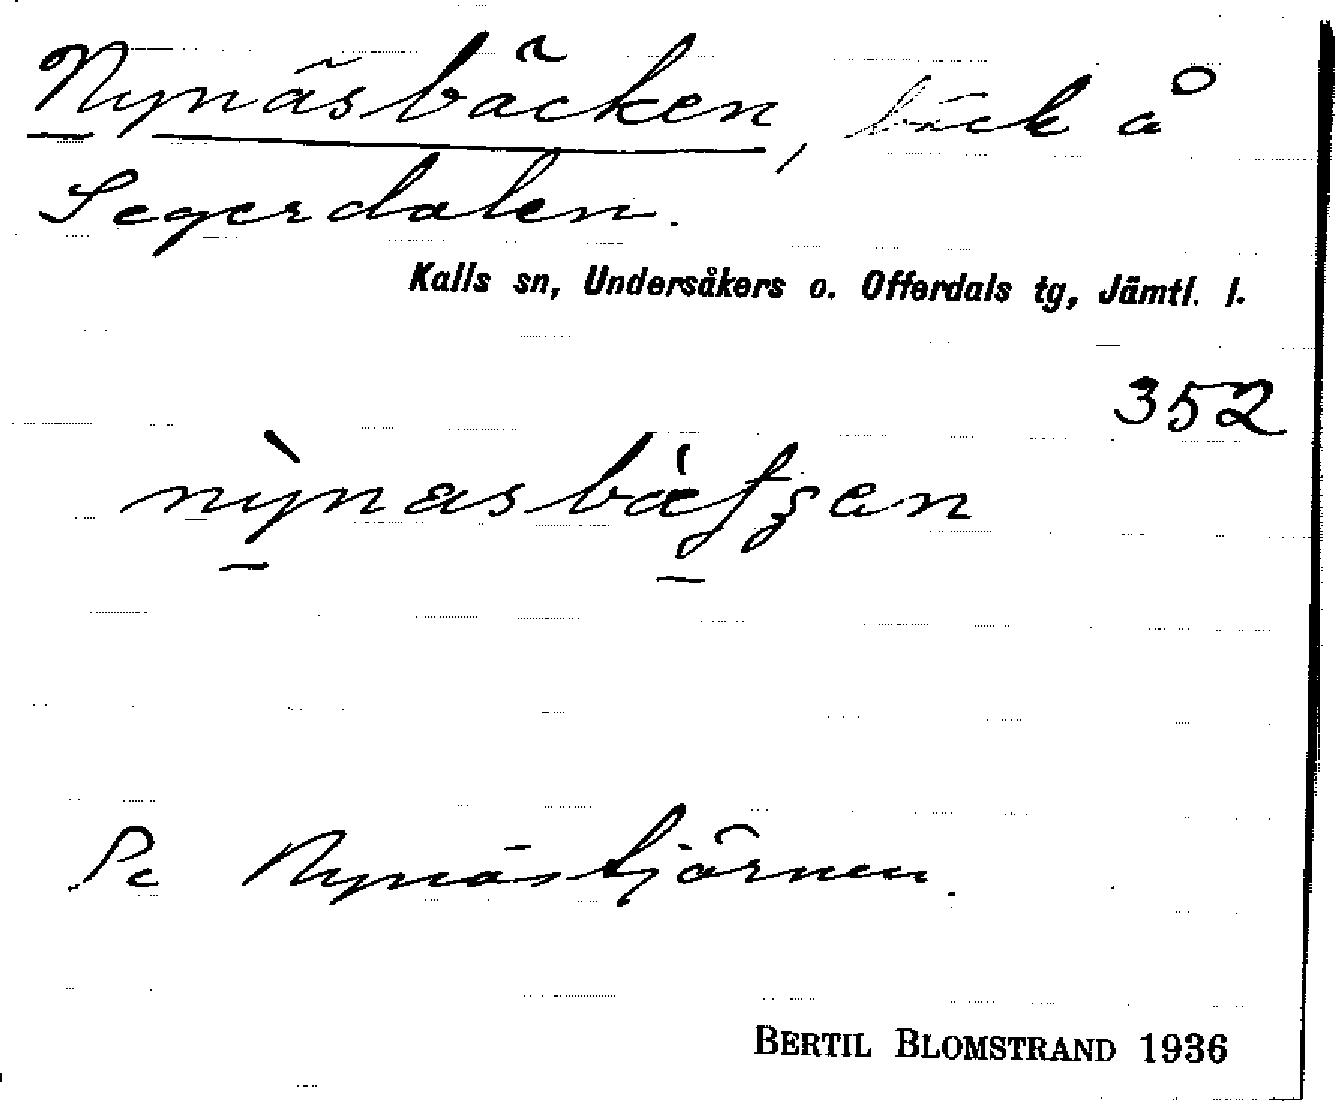 Nynäsbäcken, bäck å
Segerdalen.
Kalls sn, Undersåkers o. Offerdals tg, Jämtl. l.
352
Se Nynästjörnen.
BERTIL BLOMSTRAND 1936